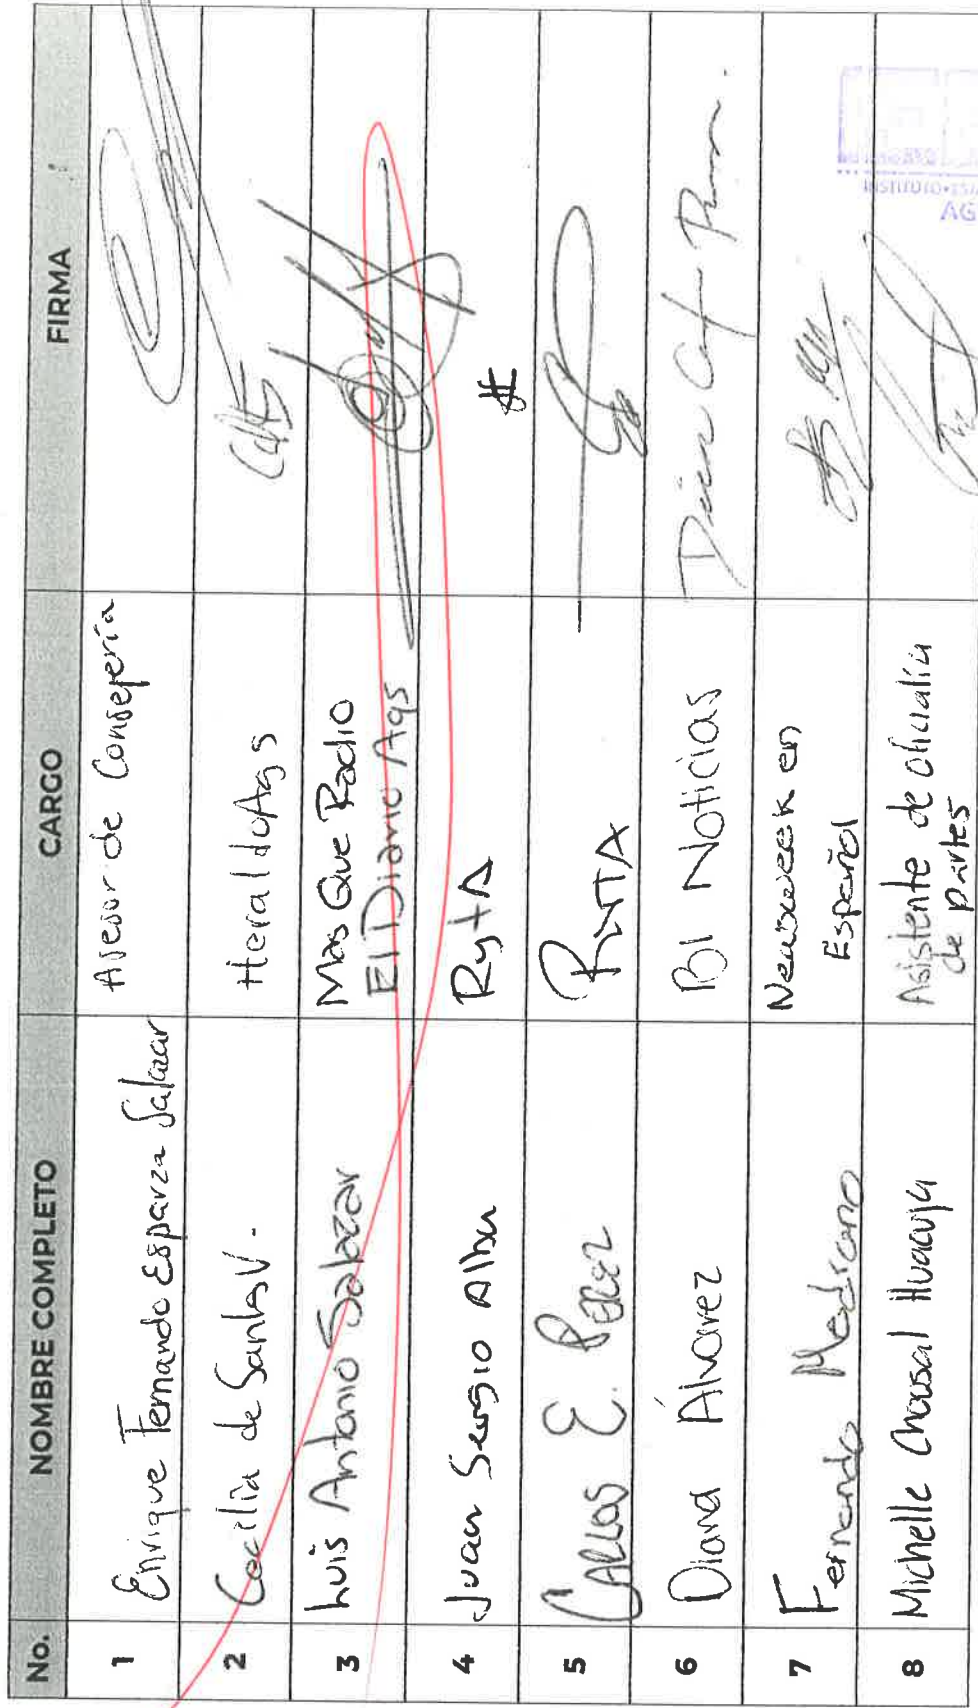 No. NOMBRE COMPLETO CARGO FIRMA
1 Enrique Fernando Esparza Salazar Asesor de Consejería
2 Cecilia de Santos V. Heraldo Ags
3 Luis Antonio Salazar Mas Que Radio
El Diario Ags
4 Juan Sergio Alba RytA
5 CARLOS E. Pérez RyTA
6 Diana Álvarez BI Noticias
7 Fernando Medrano Newsweek en
Español
8 Michelle Chousal Huacuja Asistente de oficialía
de partes
INSTITUTO
AG